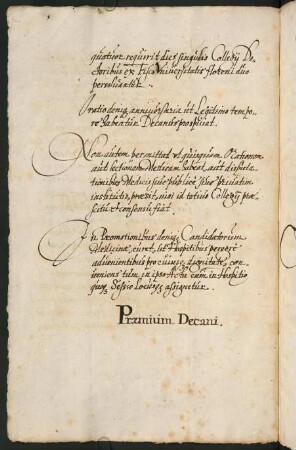 quatuor requirit dies singulis Collegij Do-
ctoribus ex Fisco Universitatis floreni duo
persolvantur.
Oratio denique anniversaria ut legitimo tempo-
re habeatur Decanus prospiciat.
Non autem permittat ut quisquam Orationem
aut lectionem Medicam habeat, aut disputa-
tionibus Medicis sive publicè sive privatim
institutis, praesit, nisi id totius Collegij prae-
scitu et consensu fiat.
In Promotionibus denique Candidatorum
Medicinae, curet, ut Hospitibus peregrè
advenientibus pro cuiusque dignitate, con-
veniens tum in ipso Actu cum in Hospitio
quoque Sessio locusque assignetur.
Præmium Decani.